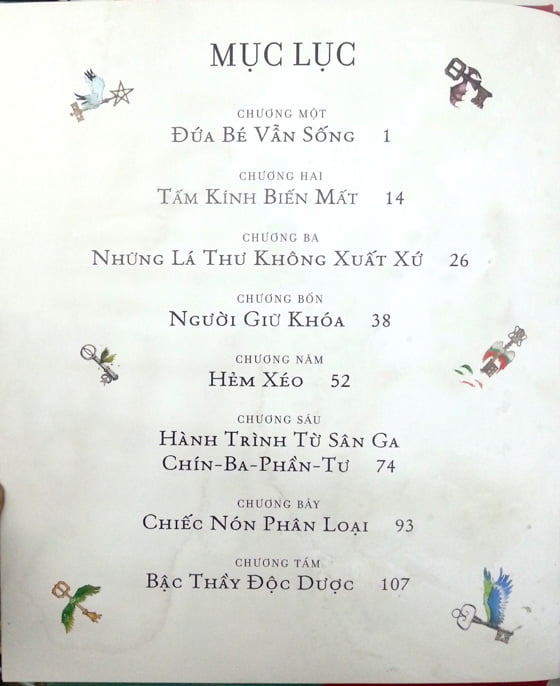 MỤC LỤC
CHƯƠNG MỘT
ĐỨA BÉ VẪN SỐNG 1
CHƯƠNG HAI
TẤM KÍNH BIẾN MẤT 14
CHƯƠNG BA
NHỮNG LÁ THƯ KHÔNG XUẤT XỨ 26
CHƯƠNG BỐN
NGƯỜI GIỮ KHÓA 38
CHƯƠNG NĂM
HẺM XÉO 52
CHƯƠNG SÁU
HÀNH TRÌNH TỪ SÂN GA
CHÍN-BA-PHẦN-TƯ 74
CHƯƠNG BẢY
CHIẾC NÓN PHÂN LOẠI 93
CHƯƠNG TÁM
BẬC THẦY ĐỘC DƯỢC 107